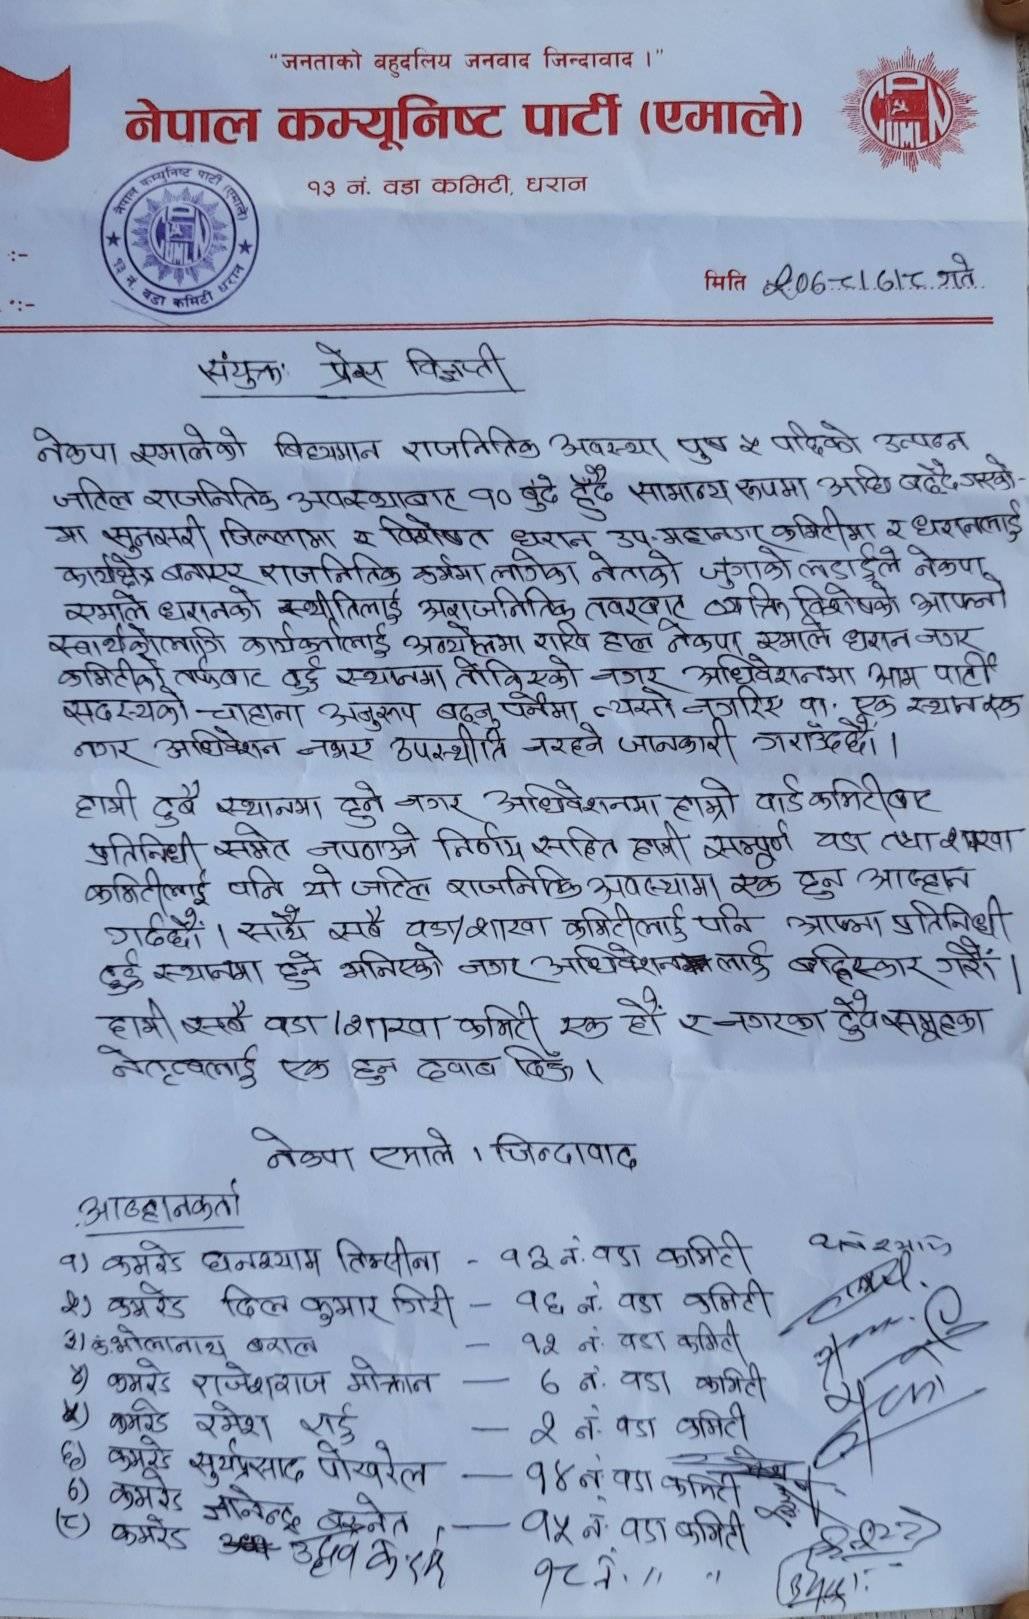 "जनताको बहुदलिय जनवाद जिन्दावाद ।"
नेपाल कम्यूनिष्ट पार्टी (एमाले)
१३ नं. वडा कमिटी, धरान
नेपाल कम्युनिष्ट पार्टी (एमाले)
CPN UML
१३ नं. वडा कमिटी धरान
मिति २०७८।७।८ गते
संयुक्त प्रेस विज्ञप्ती
नेकपा एमालेको बिद्यमान राजनितिक अवस्था पुष ५ पछिको उत्पन्न
जटिल राजनितिक अवस्थाबाट १० बुंदे हुँदै सामान्य रूपमा अघि बढ्दै गरेको-
मा सुनसरी जिल्लामा र विशेषत धरान उप-महानगर कमिटीमा र धरानलाई
कार्यक्षेत्र बनाएर राजनितिक कर्ममा लागेका नेताको जुंगाको लडाईले नेकपा
एमाले धरानको स्थीतिलाई अराजनितिक तवरबाट व्यक्ति विशेषको आफ्नो
स्वार्थकोलागि कार्यकर्तालाई अन्यौलमा राखि हाल नेकपा एमाले धरान नगर
कमिटीको तर्फबाट दुई स्थानमा तोकिएको नगर अधिवेशनमा आम पार्टी
सदस्यको चाहाना अनुरूप बढ्नु पर्नेमा त्यसो नगरिए वा एक स्थान एक
नगर अधिवेशन नभए उपस्थीति नरहने जानकारी गराउँदछौं ।
हामी दुबै स्थानमा हुने नगर अधिवेशनमा हाम्रो वार्ड कमिटीबाट
प्रतिनिधी समेत नपठाउने निर्णय सहित हामी सम्पूर्ण वडा तथा शाखा
कमिटीलाई पनि यो जटिल राजनितिक अवस्थामा एक हुन आव्हान
गर्दछौं । साथै सबै वडा/शाखा कमिटीलाई पनि आफ्ना प्रतिनिधी
दुई स्थानमा हुने भनिएको नगर अधिवेशनलाई बहिस्कार गरौं ।
हामी सबै वडा/शाखा कमिटी एक हौं र नगरका दुवै समूहका
नेतृत्वलाई एक हुन दवाब दिऊँ ।
नेकपा एमाले । जिन्दावाद
आव्हानकर्ता
१) कमरेड घनश्याम तिम्सीना - १३ नं. वडा कमिटी
२) कमरेड दिल कुमार गिरी - १६ नं. वडा कमिटी
३) क. भोलानाथ बराल - १२ नं वडा कमिटी
४) कमरेड राजेशराज मोक्तान - ७ नं. वडा कमिटी
५) कमरेड रमेश राई - २ नं. वडा कमिटी
६) कमरेड सुर्यप्रसाद पोखरेल - १४ नं. वडा कमिटी
७) कमरेड ज्ञानेन्द्र बस्नेत - १५ नं. वडा कमिटी
८) कमरेड उद्धव १८ नं. " "